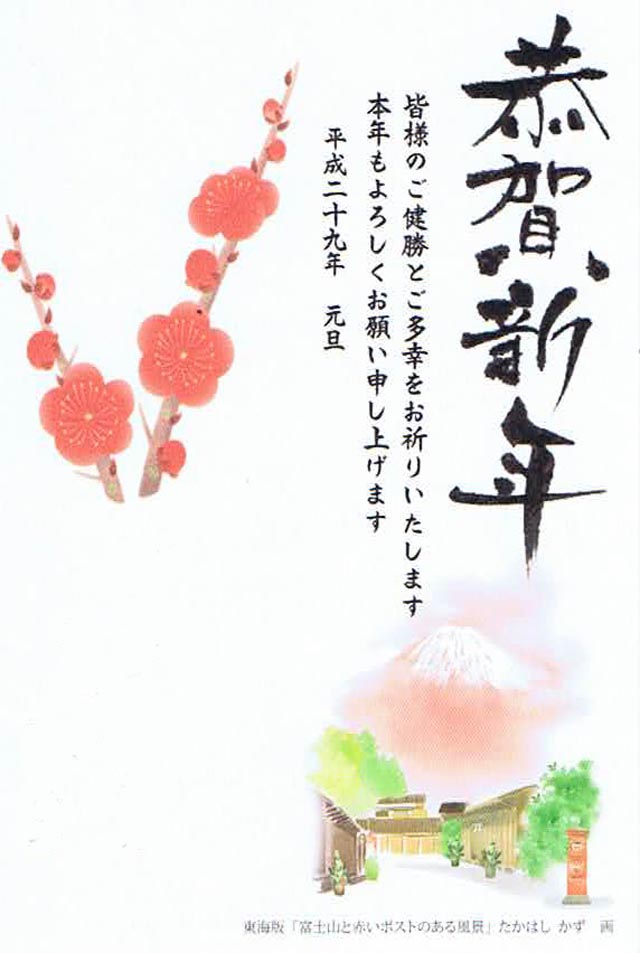 恭賀新年
皆様のご健勝とご多幸をお祈りいたします
本年もよろしくお願い申し上げます
平成二十九年 元旦
東海版「富士山と赤いポストのある風景」たかはし かず 画